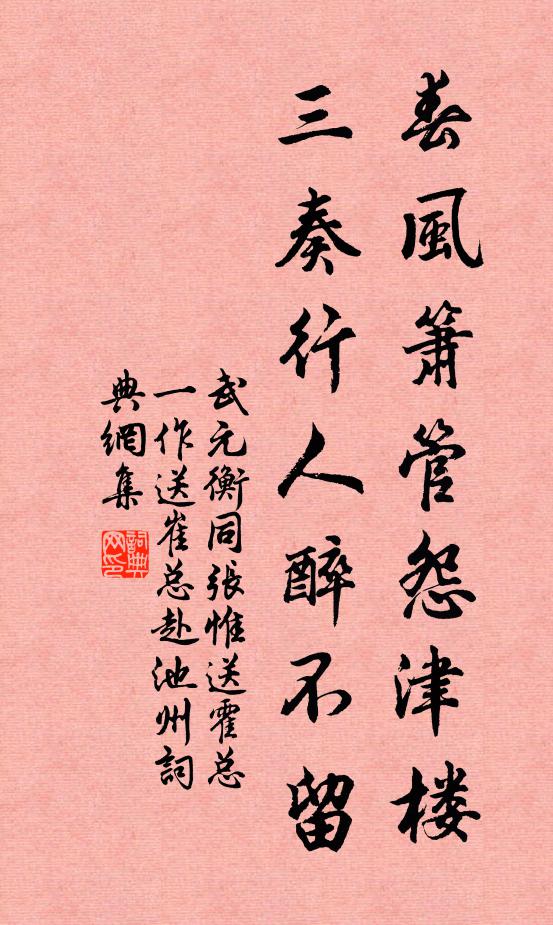 春風簫管怨津楼
三奏行人醉不留
武元衡同張惟送霍总
一作送崔总赴池州詞
典網集
詞典网印